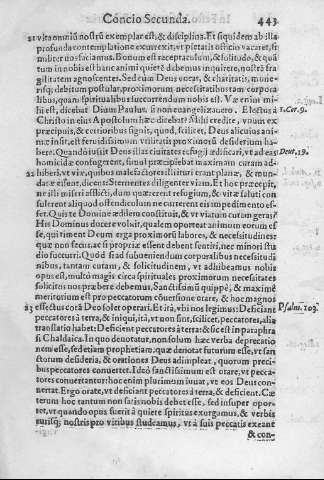 Concio Secunda. 443
21 vita omniũ nostrũ exemplar est, & disciplina. Et siquidem ab illa
profunda contemplatione exurrexit, vt pietatis officio vacaret, si
militer nos faciamus. Bonum est receptaculum, & solitudo, & quã
tum in nobis est huic animi quieti debemus inquirere, nostrã fra
gilitatem agnoscentes. Sed cum Deus vocat, & charitatis, mune-
risq; debitum postulat, proximorum necessitatibus tam corpora
libus, quam spiritualibus succurrendum nobis est. Væ enim mi-
hi est, dicebat Diuus Paulus si non euangelizauero. Electus à 1. Cor. 9.
Christo in eius Apostolum hæc dicebat? Mihi credite, vnum ex
præcipuis, & certioribus signis, quod, scilicet, Deus alicuius ani-
mæ insit, est seruidissimum vtilitatis proximorũ desiderium ha-
bere. Quando iussit Deus illas ciuitates refugij ædificari, vt ad eas Deut. 19.
homicidæ confugerent, simul præcipiebat maximam curam ad-
22 hiberi, vt viæ, quibus malefactores illi ituri erant planæ, & mun-
datæ essent, dicens: Sternentes diligenter viam. Et hoc præcepit,
ne illi miseri afflicti, dum quærerent refugium, & vitæ saluti con
sulerent aliquod offendiculum ne currerent eis impedimento es-
set. Quis te Domine ædilem constituit, & vt viarum curam geras?
His Dominus docere voluit, qualem oporteat animum eorum es
se, qui timent Deum erga proximorũ labores, & necessitudines:
quæ non secus, ac si propriæ essent debent sentiri, nec minori stu
dio succurri. Quòd si ad subueniendum corporalibus necessitudi
nibus, tantam curam, & solicitudinem, vt adhibeamus nobis
opus est, multò magis circa spirituales proximorum necessitates
solicitos nos præbere debemus. Sanctissimũ quippè, & maximè
meritorium est pro peccatorum cõuersione orare, & hoc magnos
23 effectus corã Deo solet operari. Et ita, vbi nos legimus: Deficiant Psalm. 103.
peccatores à terra, & iniqui, ità, vt non sint, scilicet, peccatores, alia
translatio habet: Deficient peccatores à terra: & sic est in paraphra
si Chaldaica. In quo denotatur, non solum hæc verba deprecatio
nem esse, sed etiam prophetiam, quæ denotat futurum esse, vt san
ctorum desideria, & orationes Deus adimpleat, quorum preci-
bus peccatores conuertet. Ideò sanctissimum est orare, vt pecca-
tores conuertantur: hoc enim plurimum iuuat, vt eos Deus con-
uertat. Ergo orate, vt deficiant peccatores à terra, & deficient. Cæ
terum hoc tantum non satis nobis debet esse, sed insuper opor-
tet, vt quando opus fuerit à quiete spiritus exurgamus, & verbis
nostris pro viribus studeamus, vt à suis peccatis exeant
& con-